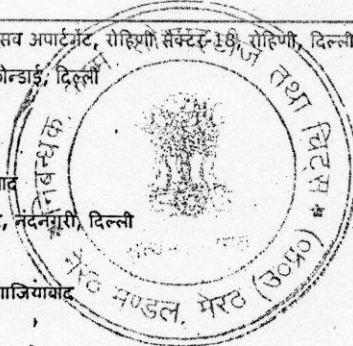 सव अपार्टमेंट, रोहिणी सैक्टर-18, रोहिणी, दिल्ली
कोन्डाई, दिल्ली
बाद
, नंदनगरी, दिल्ली
गाजियाबाद
निबन्धक तथा चिटस * (उ०प्र०) मेरठ मण्डल, मेरठ